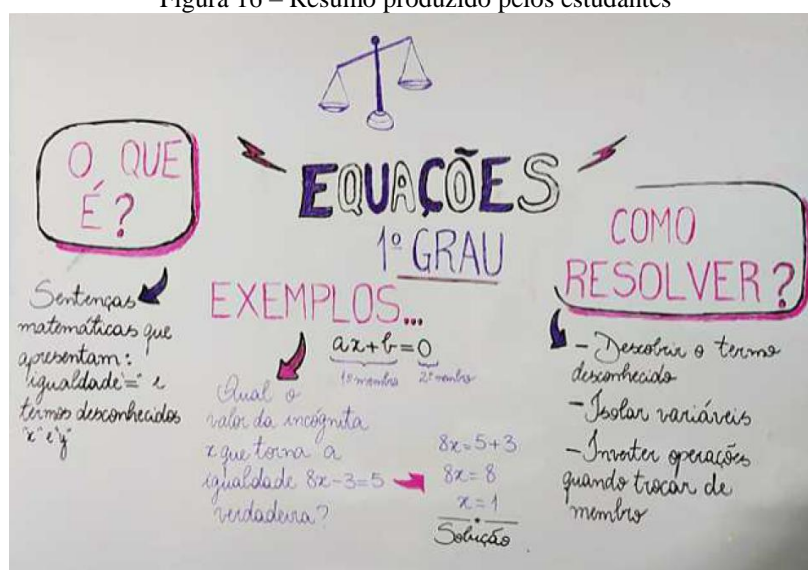 Figura 16 – Resumo produzido pelos estudantes
EQUAÇÕES
1º GRAU
O QUE
É?
Sentenças
matemáticas que
apresentam:
igualdade "=" e
termos desconhecidos
"x" e "y"
EXEMPLOS...
ax+b=0
1º membro 2º membro
Qual o
valor da incógnita
x que torna a
igualdade 8x-3=5
verdadeira?
8x=5+3
8x=8
x=1
Solução
COMO
RESOLVER?
- Descobrir o termo
desconhecido
- Isolar variáveis
- Inverter operações
quando trocar de
membro